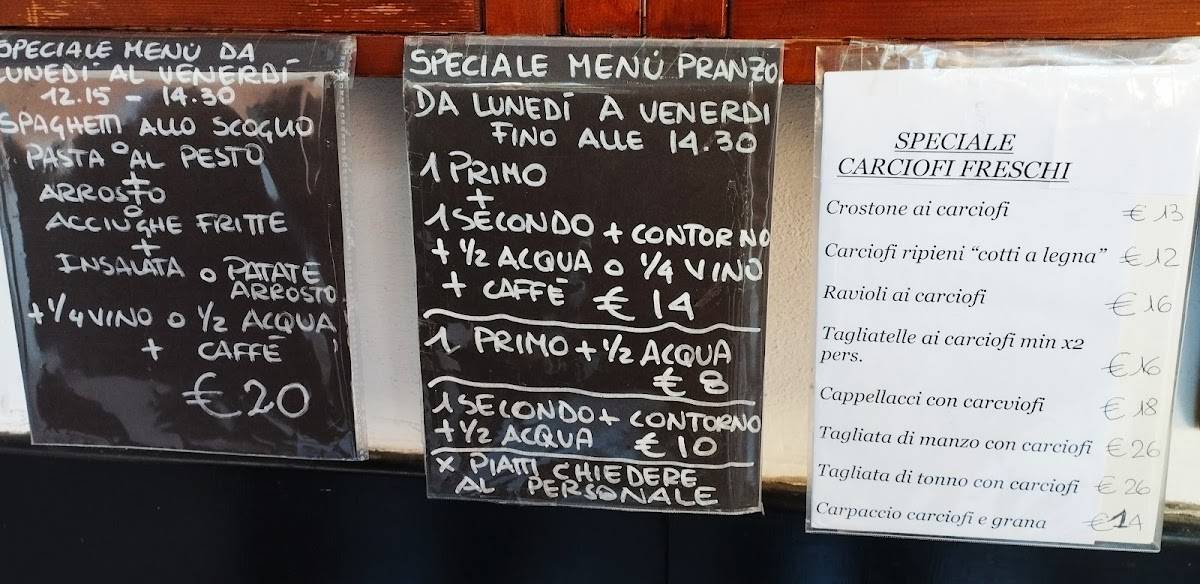 SPECIALE MENÙ DA
LUNEDÌ AL VENERDÌ
12.15 - 14.30
SPAGHETTI ALLO SCOGLIO
O
PASTA AL PESTO
+
ARROSTO
O
ACCIUGHE FRITTE
+
INSALATA O PATATE
ARROSTO
+ 1/4 VINO O 1/2 ACQUA
+ CAFFÈ
€ 20
SPECIALE MENÙ PRANZO
DA LUNEDÍ A VENERDI
FINO ALLE 14.30
1 PRIMO
+
1 SECONDO + CONTORNO
+ 1/2 ACQUA O 1/4 VINO
+ CAFFÈ € 14
1 PRIMO + 1/2 ACQUA
€ 8
1 SECONDO + CONTORNO
+ 1/2 ACQUA € 10
X PIATTI CHIEDERE
AL PERSONALE
SPECIALE
CARCIOFI FRESCHI
Crostone ai carciofi € 13
Carciofi ripieni “cotti a legna” € 12
Ravioli ai carciofi € 16
Tagliatelle ai carciofi min x2
pers. € 16
Cappellacci con carcviofi € 18
Tagliata di manzo con carciofi € 26
Tagliata di tonno con carciofi € 26
Carpaccio carciofi e grana € 14